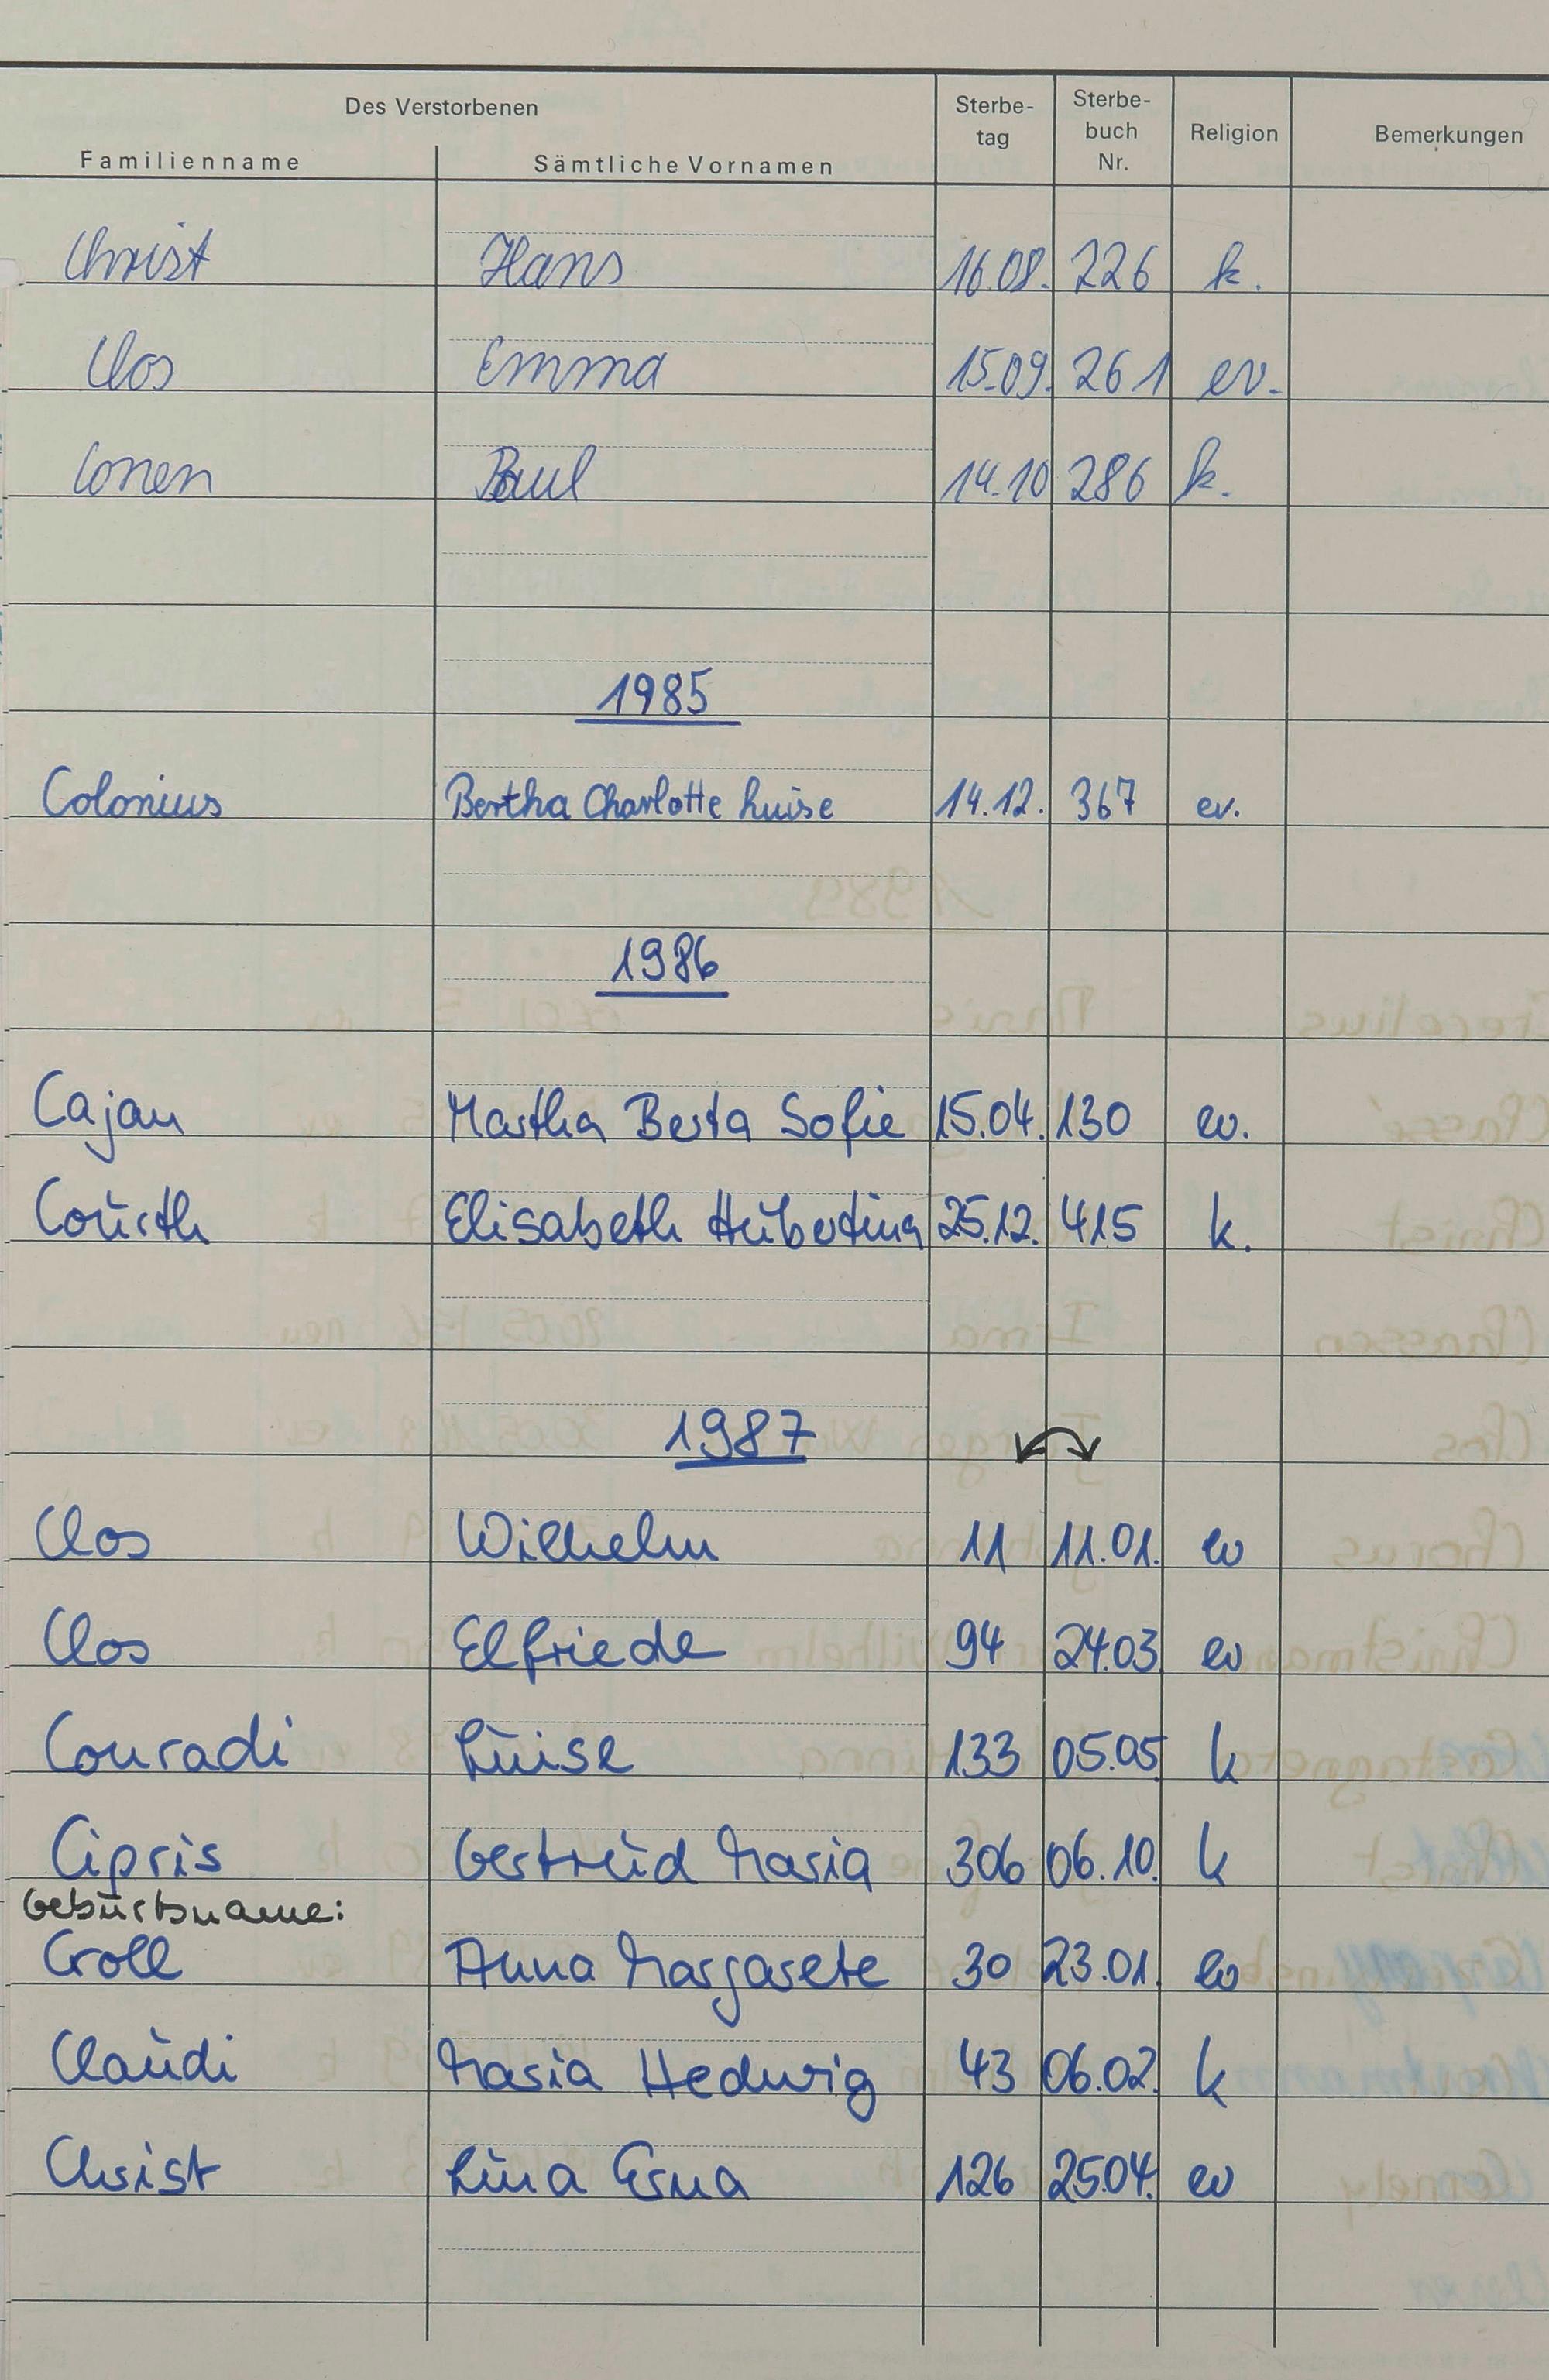 Des Verstorbenen
Familienname Sämtliche Vornamen Sterbe-tag Sterbe-buch Nr. Religion Bemerkungen
Christ Hans 16.08. 226 k.
Clos Emma 15.09. 261 ev.
Conen Paul 14.10 286 k.
1985
Colonius Bertha Charlotte Luise 14.12. 367 ev.
1986
Cajan Martha Berta Sofie 15.04. 130 ev.
Courth Elisabeth Hubertina 25.12. 415 k.
1987
Clos Wilhelm 11 11.01. ev
Clos Elfriede 94 24.03 ev
Conradi Luise 133 05.05 k
Cipris Gertrud Maria 306 06.10. k
Geburtsname:
Croll Anna Margarete 30 23.01. ev
Claudi Maria Hedwig 43 06.02. k
Christ Lina Erna 126 25.04. ev